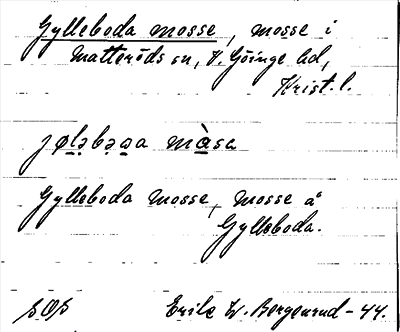 Gylleboda mosse, mosse i
Matteröds sn, V. Göinge hd,
Krist. l.
jøləbəa màsa
Gylleboda mosse, mosse å
Gylleboda.
SOS Erik W. Bergenrud - 44.